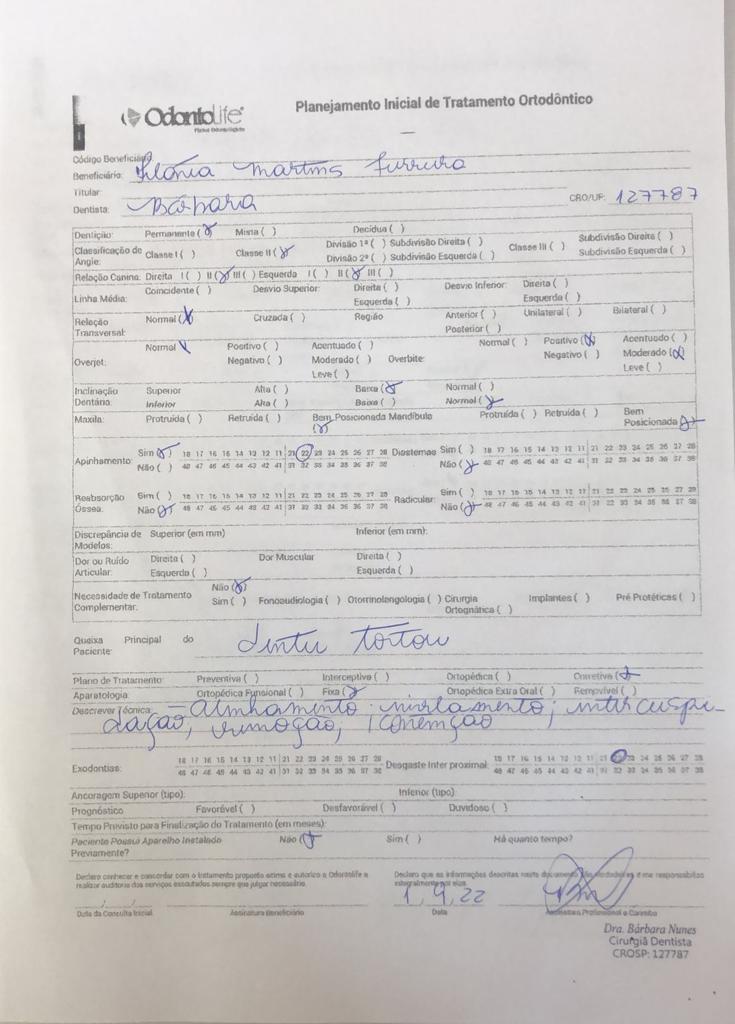 OdontoLife
Planos Odontológicos
Planejamento Inicial de Tratamento Ortodôntico
Código Beneficiário:
Beneficiário: Martins Ferreira
Titular:
Dentista: Bárbara CRO/UF: 127787
Dentição: Permanente (x) Mista ( ) Decídua ( )
Classificação de Angle: Classe I ( ) Classe II (x) Divisão 1ª ( ) Subdivisão Direita ( ) Classe III ( ) Subdivisão Direita ( )
Divisão 2ª ( ) Subdivisão Esquerda ( ) Subdivisão Esquerda ( )
Relação Canina: Direita I ( ) II (x) III ( ) Esquerda I ( ) II (x) III ( )
Linha Média: Coincidente ( ) Desvio Superior: Direita ( ) Desvio Inferior: Direita ( )
Esquerda ( ) Esquerda ( )
Relação Transversal: Normal (x) Cruzada ( ) Região Anterior ( ) Unilateral ( ) Bilateral ( )
Posterior ( )
Overjet: Normal x Positivo ( ) Acentuado ( ) Overbite: Normal ( ) Positivo (x) Acentuado ( )
Negativo ( ) Moderado ( ) Negativo ( ) Moderado (x)
Leve ( ) Leve ( )
Inclinação Dentária: Superior Alta ( ) Baixa (x) Normal ( )
Inferior Alta ( ) Baixa ( ) Normal (x)
Maxila: Protruída ( ) Retruída ( ) Bem Posicionada (x) Mandíbula Protruída ( ) Retruída ( ) Bem Posicionada (x)
Apinhamento: Sim (x) 18 17 16 15 14 13 12 11 21 22 23 24 25 26 27 28 Diastemas Sim ( ) 18 17 16 15 14 13 12 11 21 22 23 24 25 26 27 28
Não ( ) 48 47 46 45 44 43 42 41 31 32 33 34 35 36 37 38 Não (x) 48 47 46 45 44 43 42 41 31 32 33 34 35 36 37 38
Reabsorção Óssea: Sim ( ) 18 17 16 15 14 13 12 11 21 22 23 24 25 26 27 28 Radicular: Sim ( ) 18 17 16 15 14 13 12 11 21 22 23 24 25 26 27 28
Não (x) 48 47 46 45 44 43 42 41 31 32 33 34 35 36 37 38 Não (x) 48 47 46 45 44 43 42 41 31 32 33 34 35 36 37 38
Discrepância de Modelos: Superior (em mm) Inferior (em mm):
Dor ou Ruído Articular: Direita ( ) Dor Muscular Direita ( )
Esquerda ( ) Esquerda ( )
Necessidade de Tratamento Complementar: Não (x)
Sim ( ) Fonoaudiologia ( ) Otorrinolengologia ( ) Cirurgia Ortognática ( ) Implantes ( ) Pré Protéticas ( )
Queixa Principal do Paciente: dente tortou
Plano de Tratamento: Preventiva ( ) Interceptiva ( ) Ortopédica ( ) Corretiva (x)
Aparatologia: Ortopédica Funsional ( ) Fixa (x) Ortopédica Extra Oral ( ) Removível ( )
Descrever Técnica: - alinhamento; nivelamento; intercuspi-
dação, remoção, contenção
Exodontias: 18 17 16 15 14 13 12 11 21 22 23 24 25 26 27 28 Desgaste Inter proximal: 18 17 16 15 14 13 12 11 21 23 24 25 26 27 28
48 47 46 45 44 43 42 41 31 32 33 34 35 36 37 38 48 47 46 45 44 43 42 41 31 32 33 34 35 36 37 38
Ancoragem Superior (tipo): Inferior (tipo):
Prognóstico Favorável ( ) Desfavorável ( ) Duvidoso ( )
Tempo Previsto para Finalização do Tratamento (em meses):
Paciente Possui Aparelho Instalado Previamente? Não (x) Sim ( ) Há quanto tempo?
Declaro conhecer e concordar com o tratamento proposto acima e autorizo a Odontolife a
realizar auditoria dos serviços executados sempre que julgar necessário.
Declaro que as informações descritas neste documento são verdadeiras e me responsabilizo
integralmente por elas.
/ / 1, 9, 22
Data da Consulta Inicial Assinatura Beneficiário Data Assinatura Profissional e Carimbo
Dra. Bárbara Nunes
Cirurgiã Dentista
CROSP: 127787